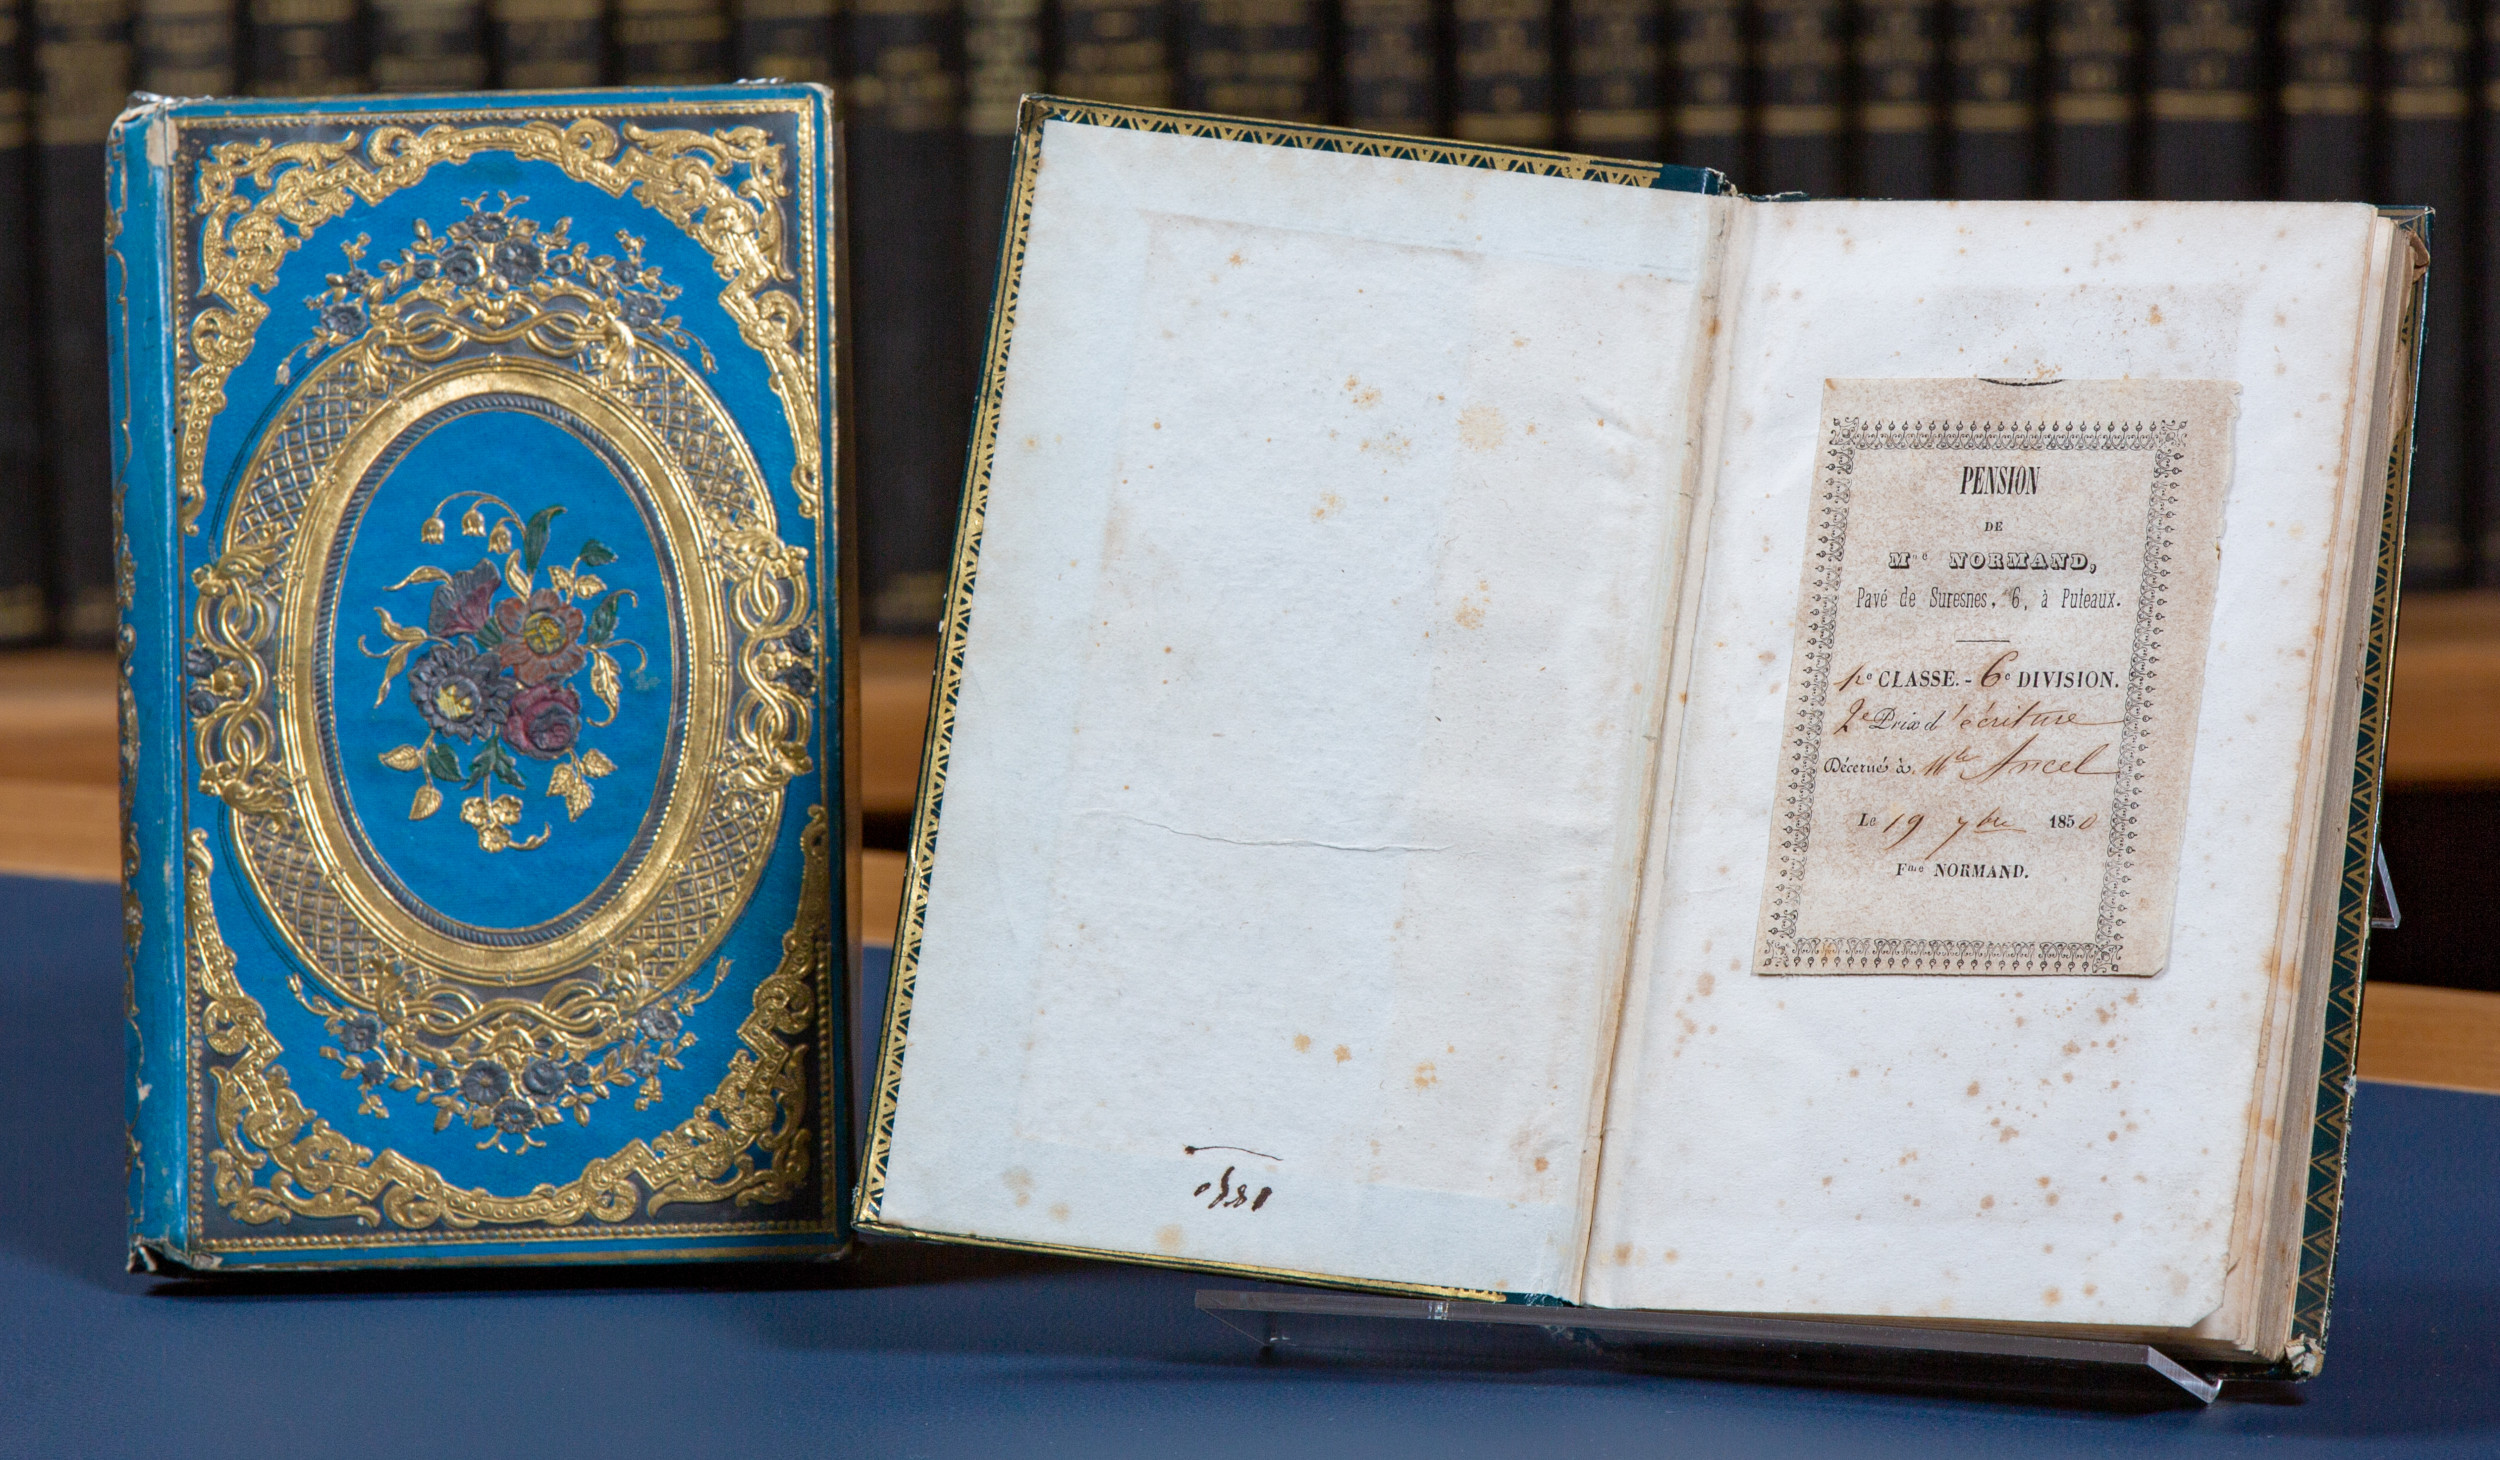 PENSION
DE
Mme NORMAND,
Pavé de Suresnes, 6, à Puteaux.
1re CLASSE. - 6e DIVISION.
2e Prix d'écriture
Décerné à Mlle Ancel
Le 19 7bre 1850
Fme NORMAND.